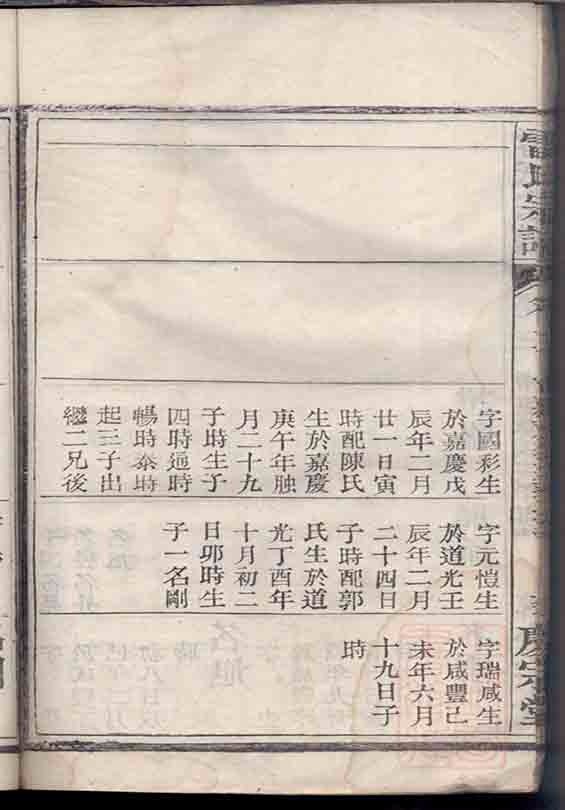 雷氏宗譜
慶宗堂
字國彩生
於嘉慶戊
辰年二月
廿一日寅
時配陳氏
生於嘉慶
庚午年融
月二十九
子時生子
四時通時
暢時泰時
起三子出
繼二兄後
字元愷生
於道光壬
辰年二月
二十四日
子時配郭
氏生於道
光丁酉年
十月初二
日卯時生
子一名剛
字瑞咸生
於咸豐己
未年六月
十九日子
時